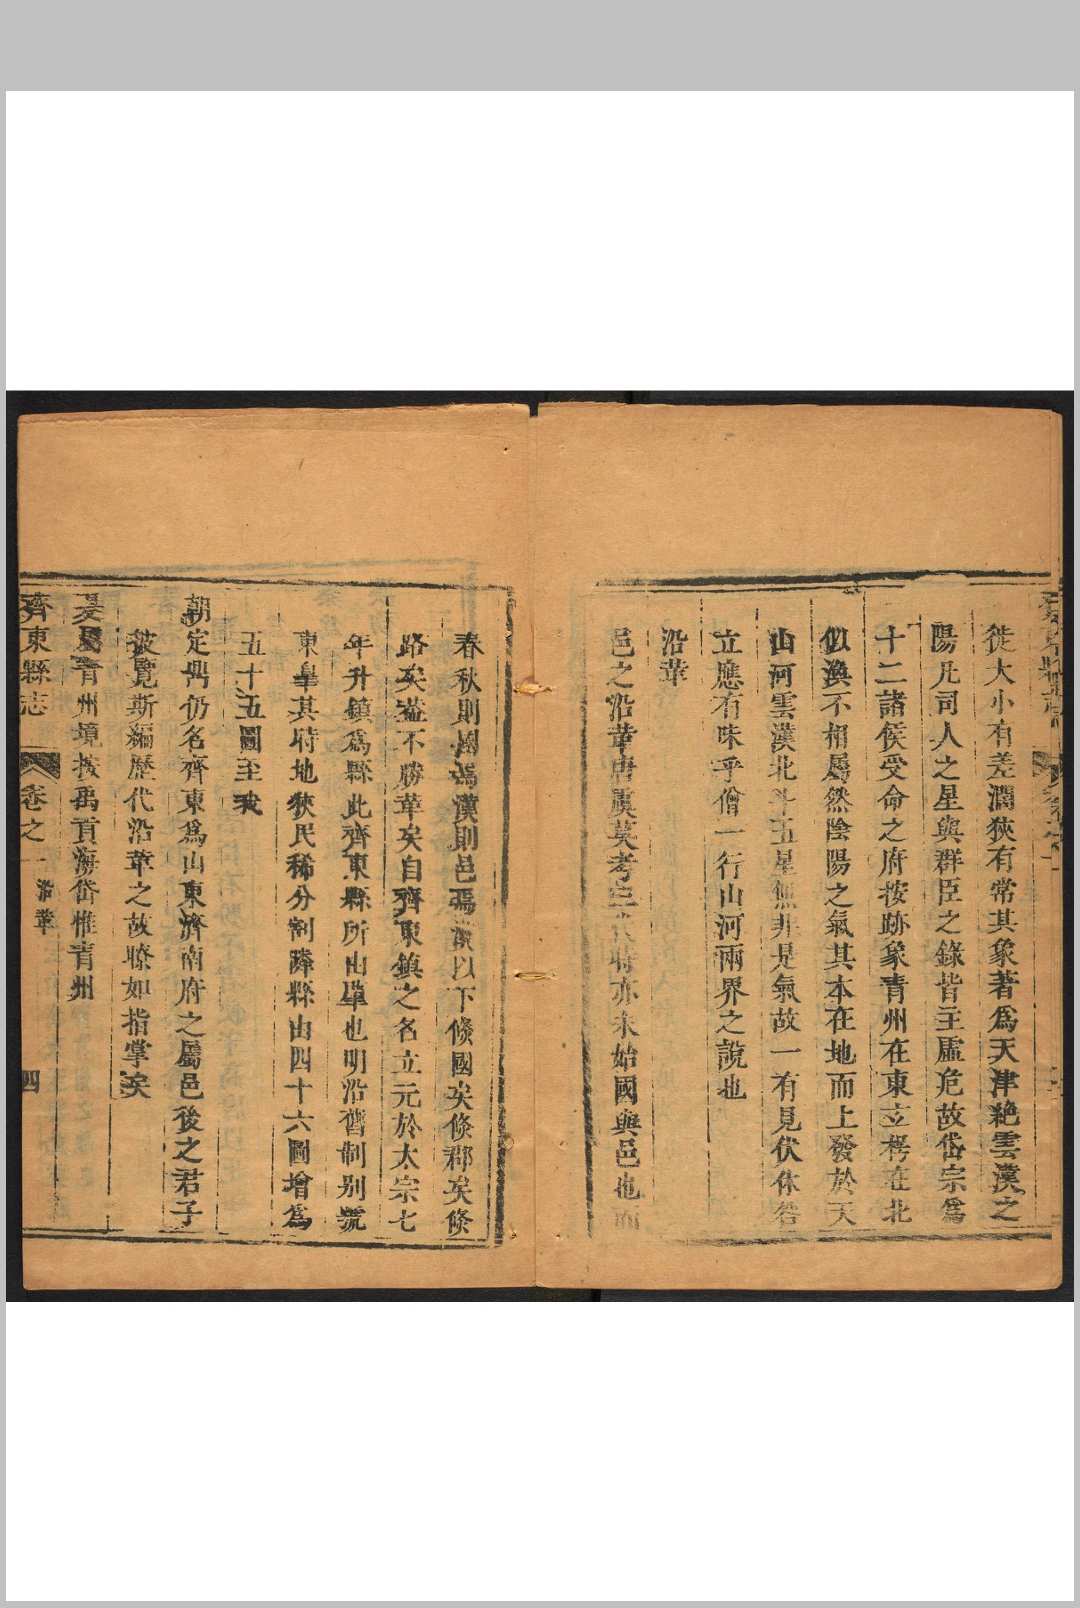 徙大小有差濶狹有常其象著為天津絶雲漢之
陽凡司人之星與群臣之錄皆主虛危故岱宗為
十二諸侯受命之府按跡象青州在東立楞在北
似渙不相屬然陰陽之氣其本在地而上發於天
山河雲漢北斗五星無非是氣故一有見伏休咎
立應有味乎僧一行山河兩界之說也
沿革
邑之沿革唐虞莫考三代時亦未始國與邑也而
春秋則國焉漢則邑焉漢以下倐國矣倐郡矣倐
路矣葢不勝革矣自齊東鎮之名立元於太宗七
年升鎮為縣此齊東縣所由肇也明沿舊制别號
東皐其時地狹民稀分割隣縣由四十六圖增為
五十五圖至我
朝定興仍名齊東為山東濟南府之屬邑後之君子
披覽斯編歷代沿革之故瞭如指掌矣
夏屬青州境按禹貢海岱惟青州
齊東縣志 卷之一 沿革 四